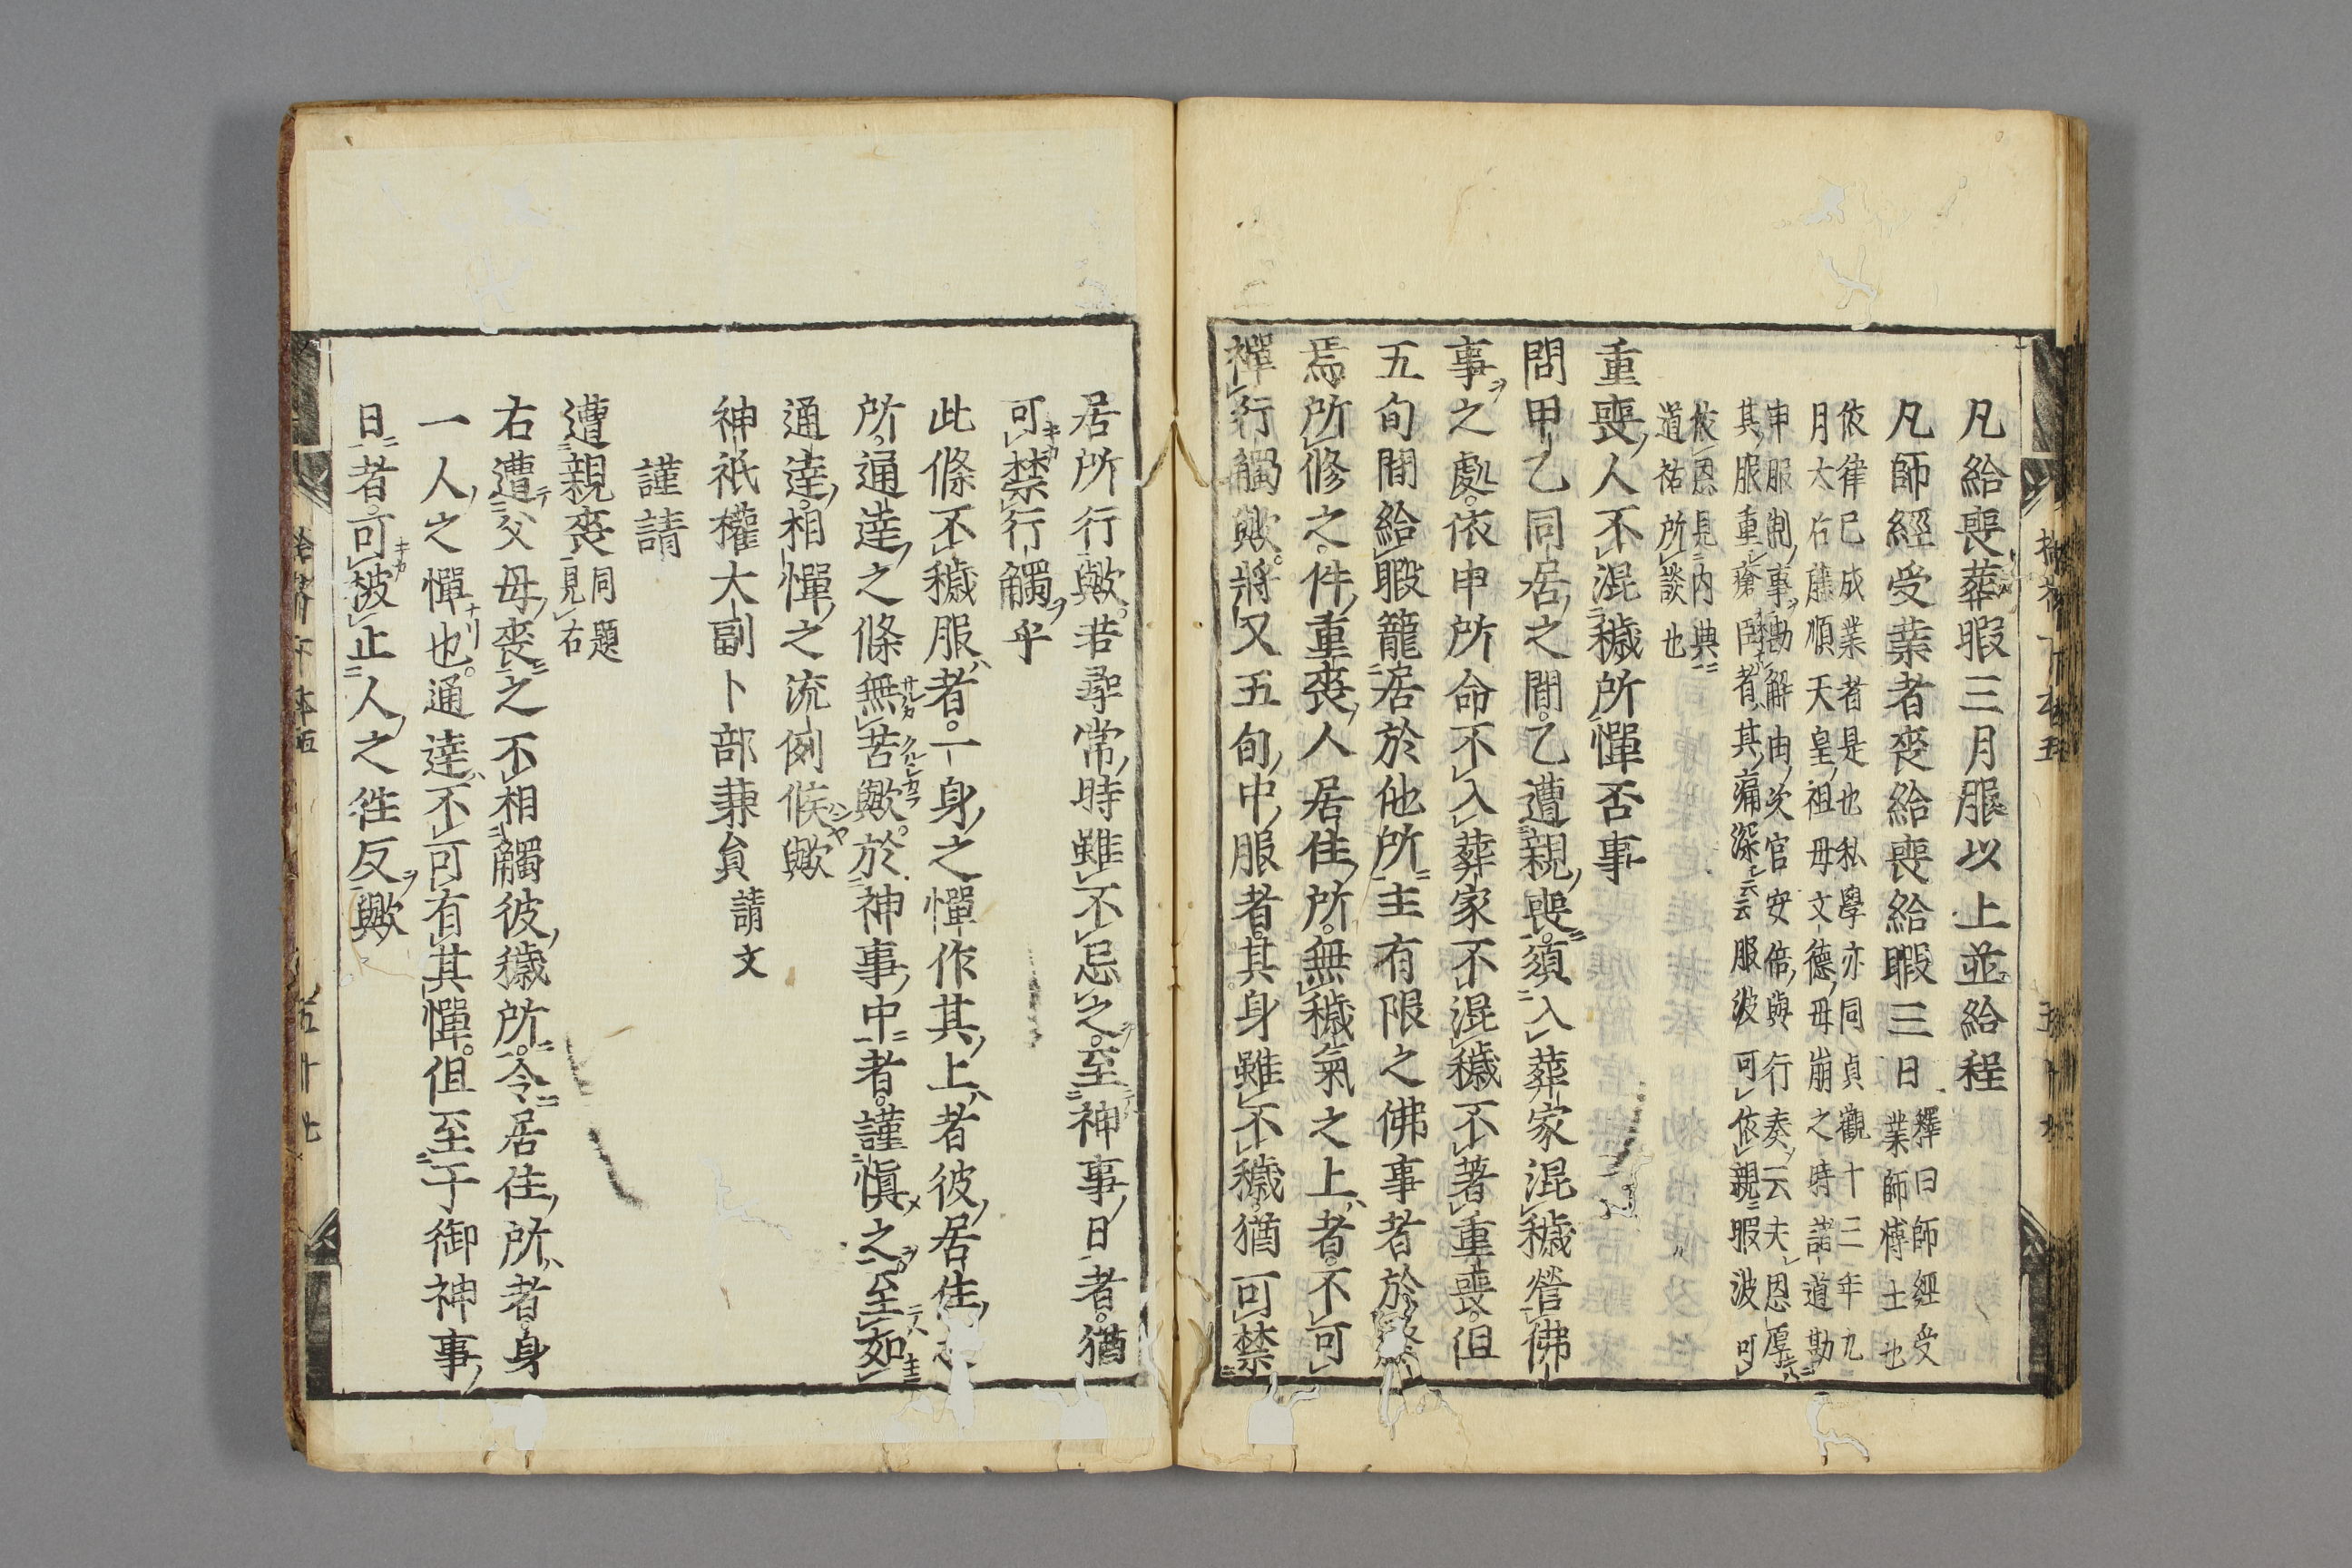 凡給喪葬暇三月服以上並給程
凡師經受業者喪給喪給暇三日
釋曰師經受
業師博士也
依律已成業者是也私學亦同貞觀十三年九
月大右䕃順天皇祖母文德母崩之時諸道勘
申服制事勘解由次官安倍與行奏云夫恩厚
其服重瘡者其痛深云云服波可依親暇波可
依恩見内典
道祐所談也
重喪人不混穢所憚否事
問甲乙同居之間乙遭親喪須入葬家混穢營佛
事之處依申所命不入葬家不混穢不著重喪但
五旬間給暇籠居於他所主有限之佛事者於
焉所修之件重喪人居住所無穢氣之上者不可
憚行觸歟將又五旬中服者其身雖不穢猶可禁
居所行歟若尋常時雖不忌之至神事日者猶
可禁行觸乎
此條不穢服者一身之憚作其上者彼居住
所通達之條無苦歟於神事中者謹愼之至如
通達相憚之流例候歟
神祇權大副卜部兼貟請文
謹請
遭親喪
同題
見右
右遭父母喪之不相觸彼穢所令居住所者身
一人之憚也通達不可有其憚但至于御神事
日者可被止人之徃反歟
五十七